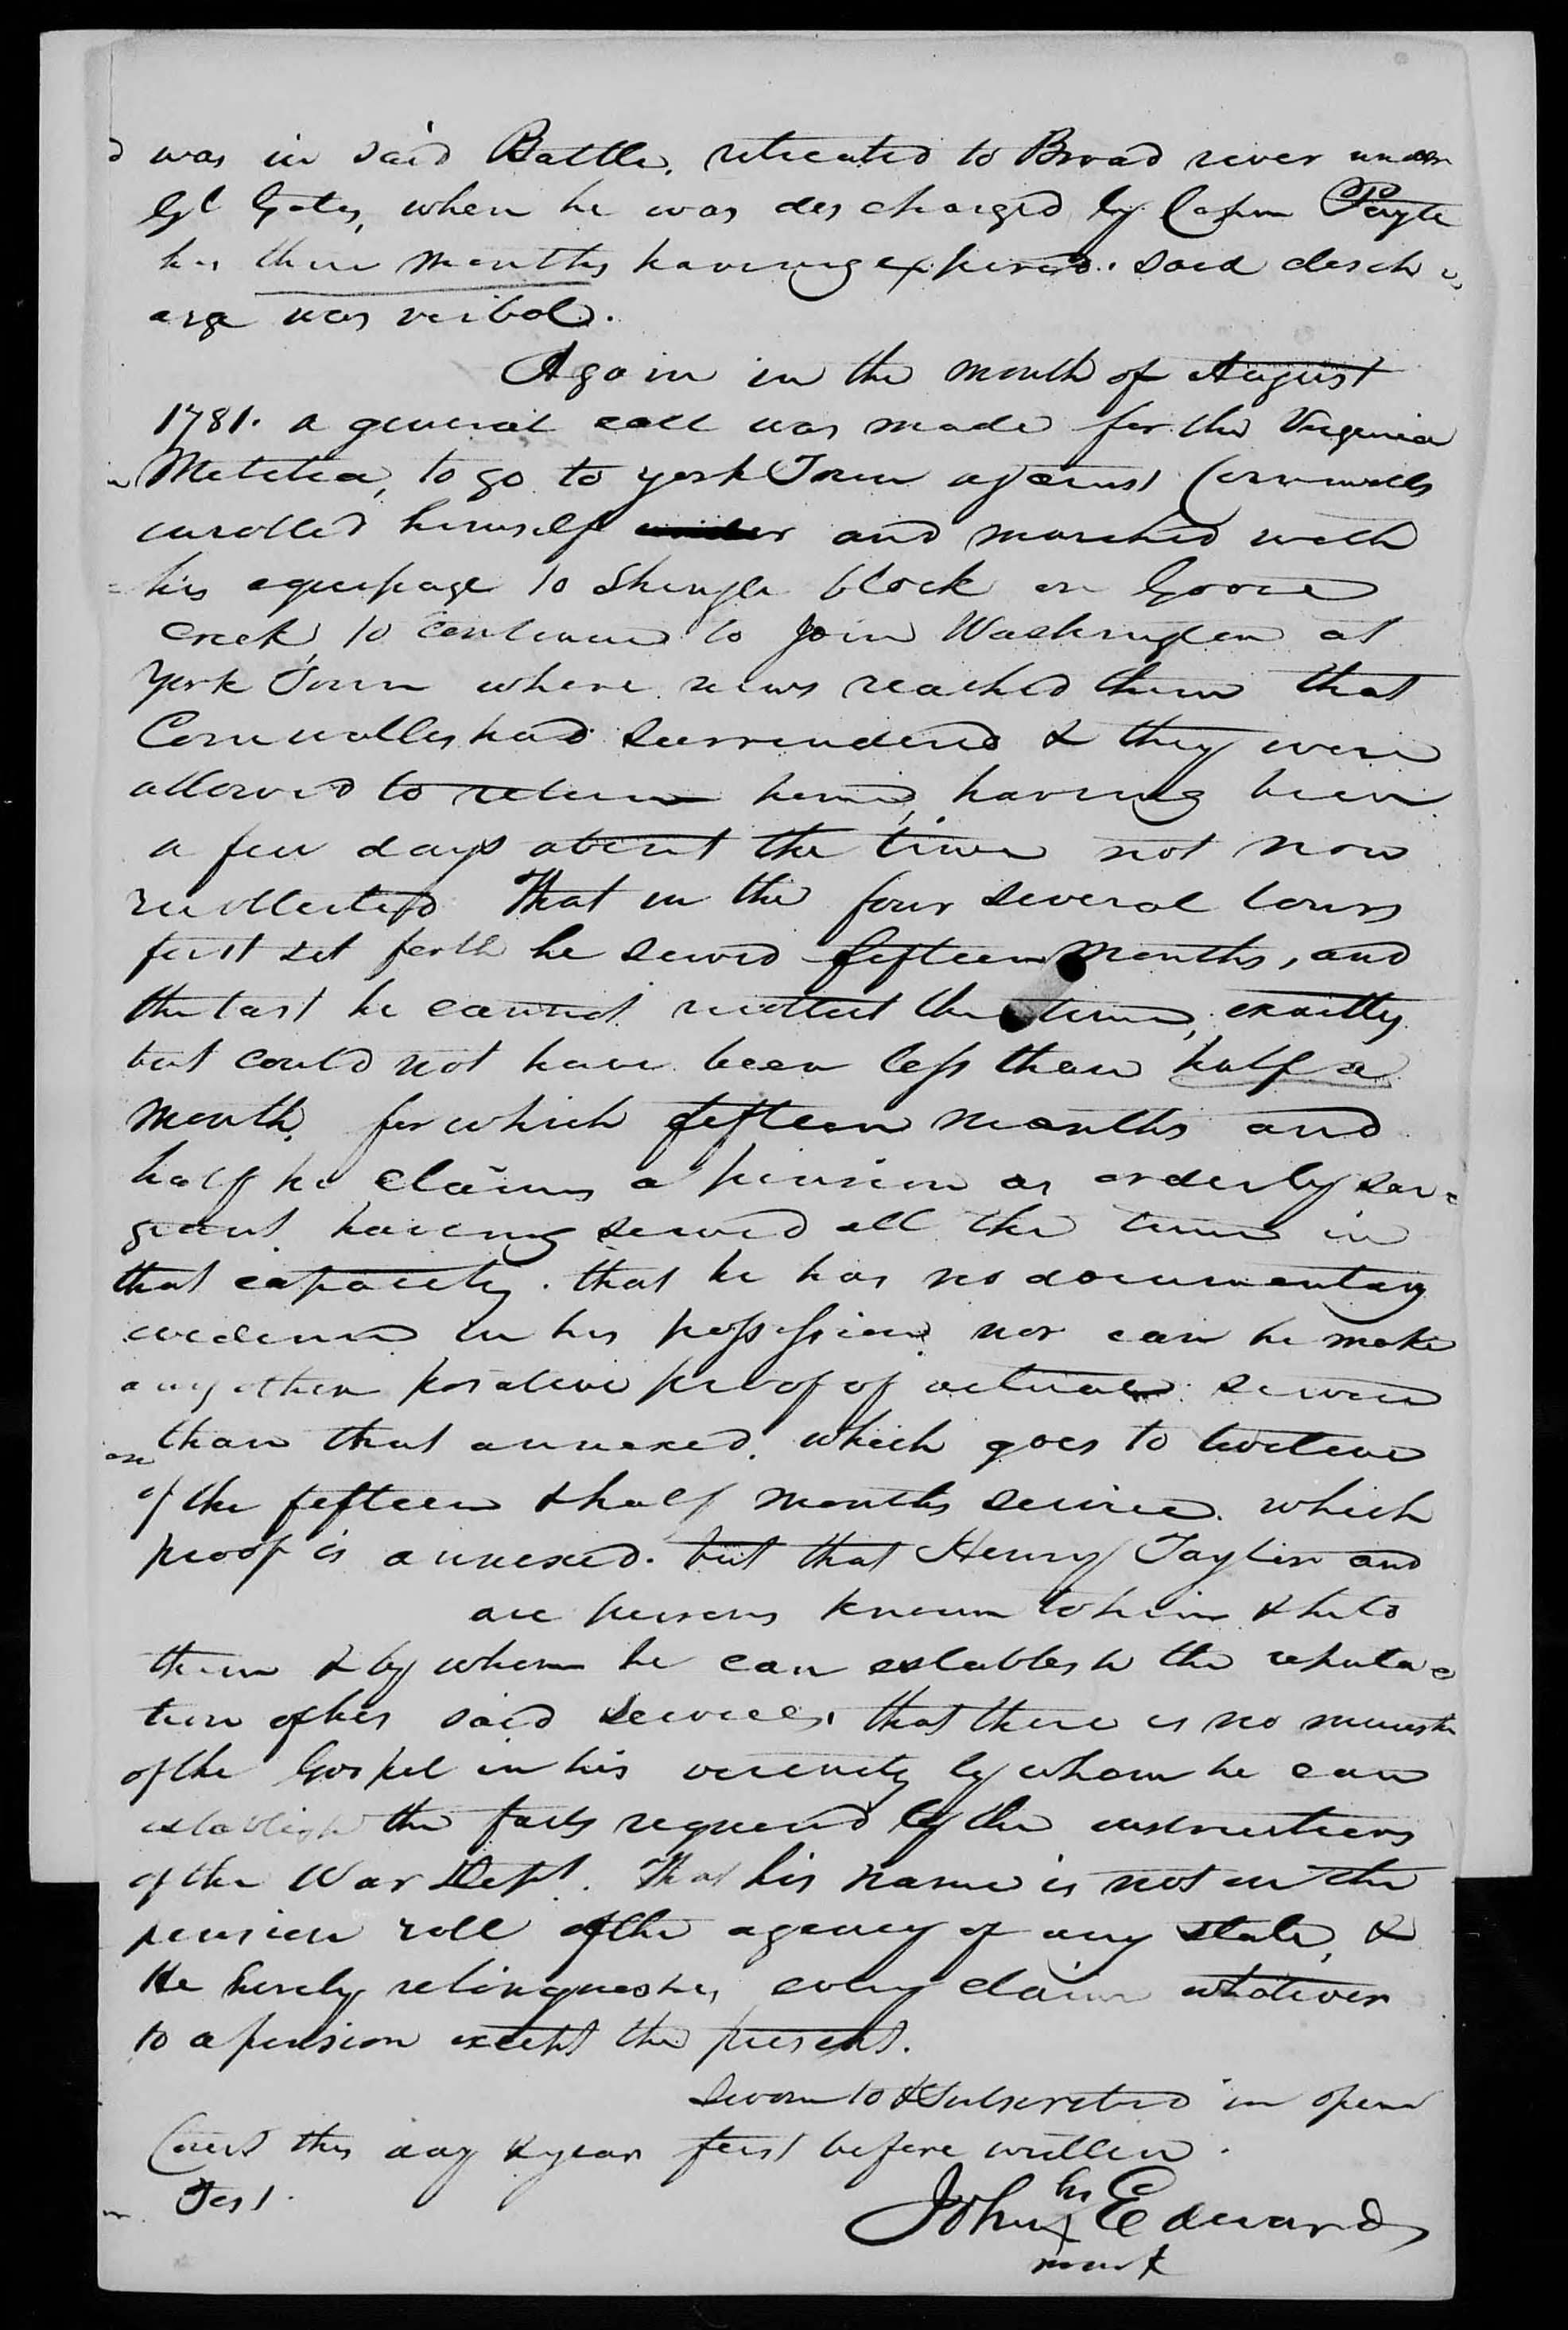 was in said Battle, retreated to Broad river under
Gl Gates, when he was descharged by Capn
his three months having expired. said desch
arge was verbal.
Again in the month of August
1781. a general call was made for the Virginia
Meletea, to go to york Town against Cornwalls
enrolled himself under and marched with
his equipage to Shingle block on Goose
Creek, to continue to Join Washington at
York Town where news reached them that
Cornwalles had surrendered & they were
allowed to return home, having been
a few days absent the time not now
recollected That in the four several tours
first set forth he served fifteen Months, and
the last he cannot recollect the time, exactly
but could not have been less than half a
Month, for which fifteen months and
half he claims a pension as orderly ser=
geant having served all the time in
that capacity. that he has no documentary
evidence in his possession nor can he make
any other positive proof of actual service
than that annexed. which goes to twelve
of the fifteen & half months service. which
proof is annexed. but that Henry Tayler and
are persons known to him & he to
them & by whom he can establesh the reputa=
tion of his said services, that there is no minister
of the Gospel in his vicinity by whom he can
establish the facts required by the instructions
of the War Dept. That his name is not on the
pension roll of the agency of any state, &
He hereby relinqueshes every claim whatever
to a pension except the present.
Sworn to & Subscribed in open
Court this day & year first before written.
Test.
his
John X Edwards
mark